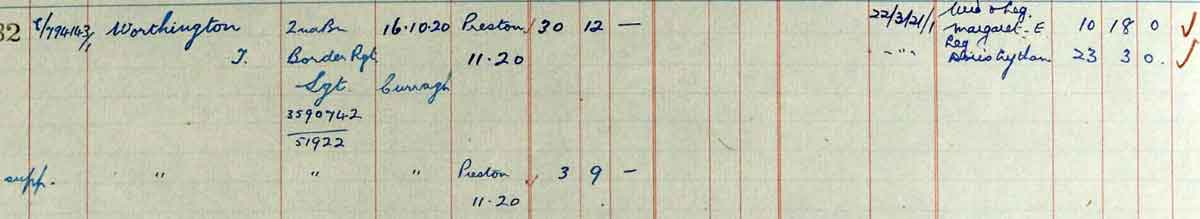 32 E/794143/1 Worthington 2nd Bn 16.10.20 Preston 30 12 — 22/3/21/1 Wid & Leg. Margaret. E 10 18 0 ✓
T. Border Rgt. 11.20 — " " Reg 23 3 0. ✓
Sgt. Curragh
3590742
51922
supp. " " " Preston ✓ 3 9 —
11.20